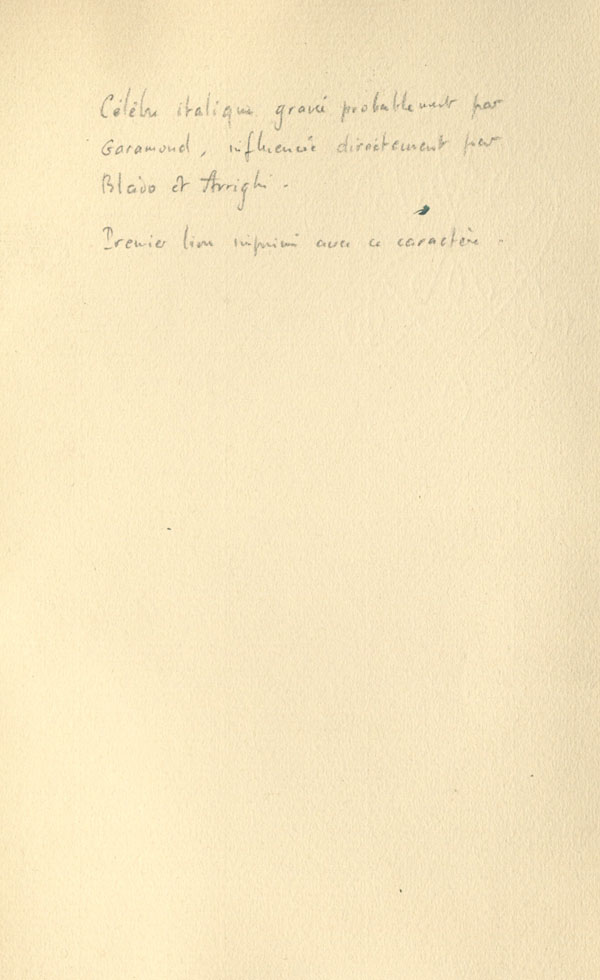 Célèbre italique gravé probablement par
Garamond, influencée directement par
Blado et Arrighi -
Premier livre imprimé avec ce caractère -